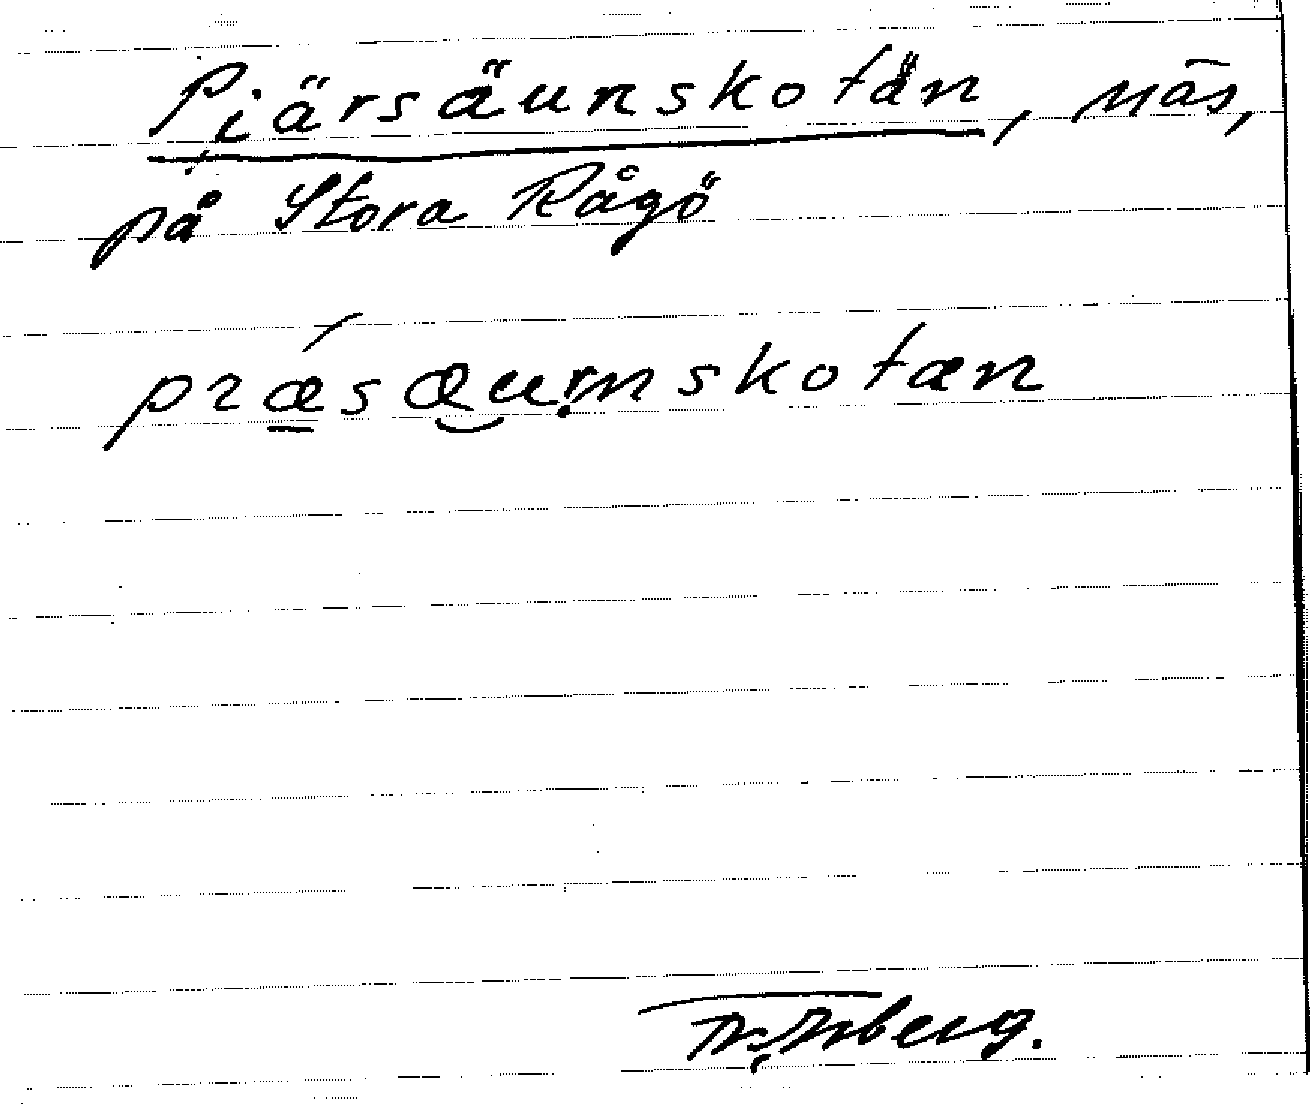 Pjärsäunskotän, näs,
på Stora Rågö
præsæunskotæn